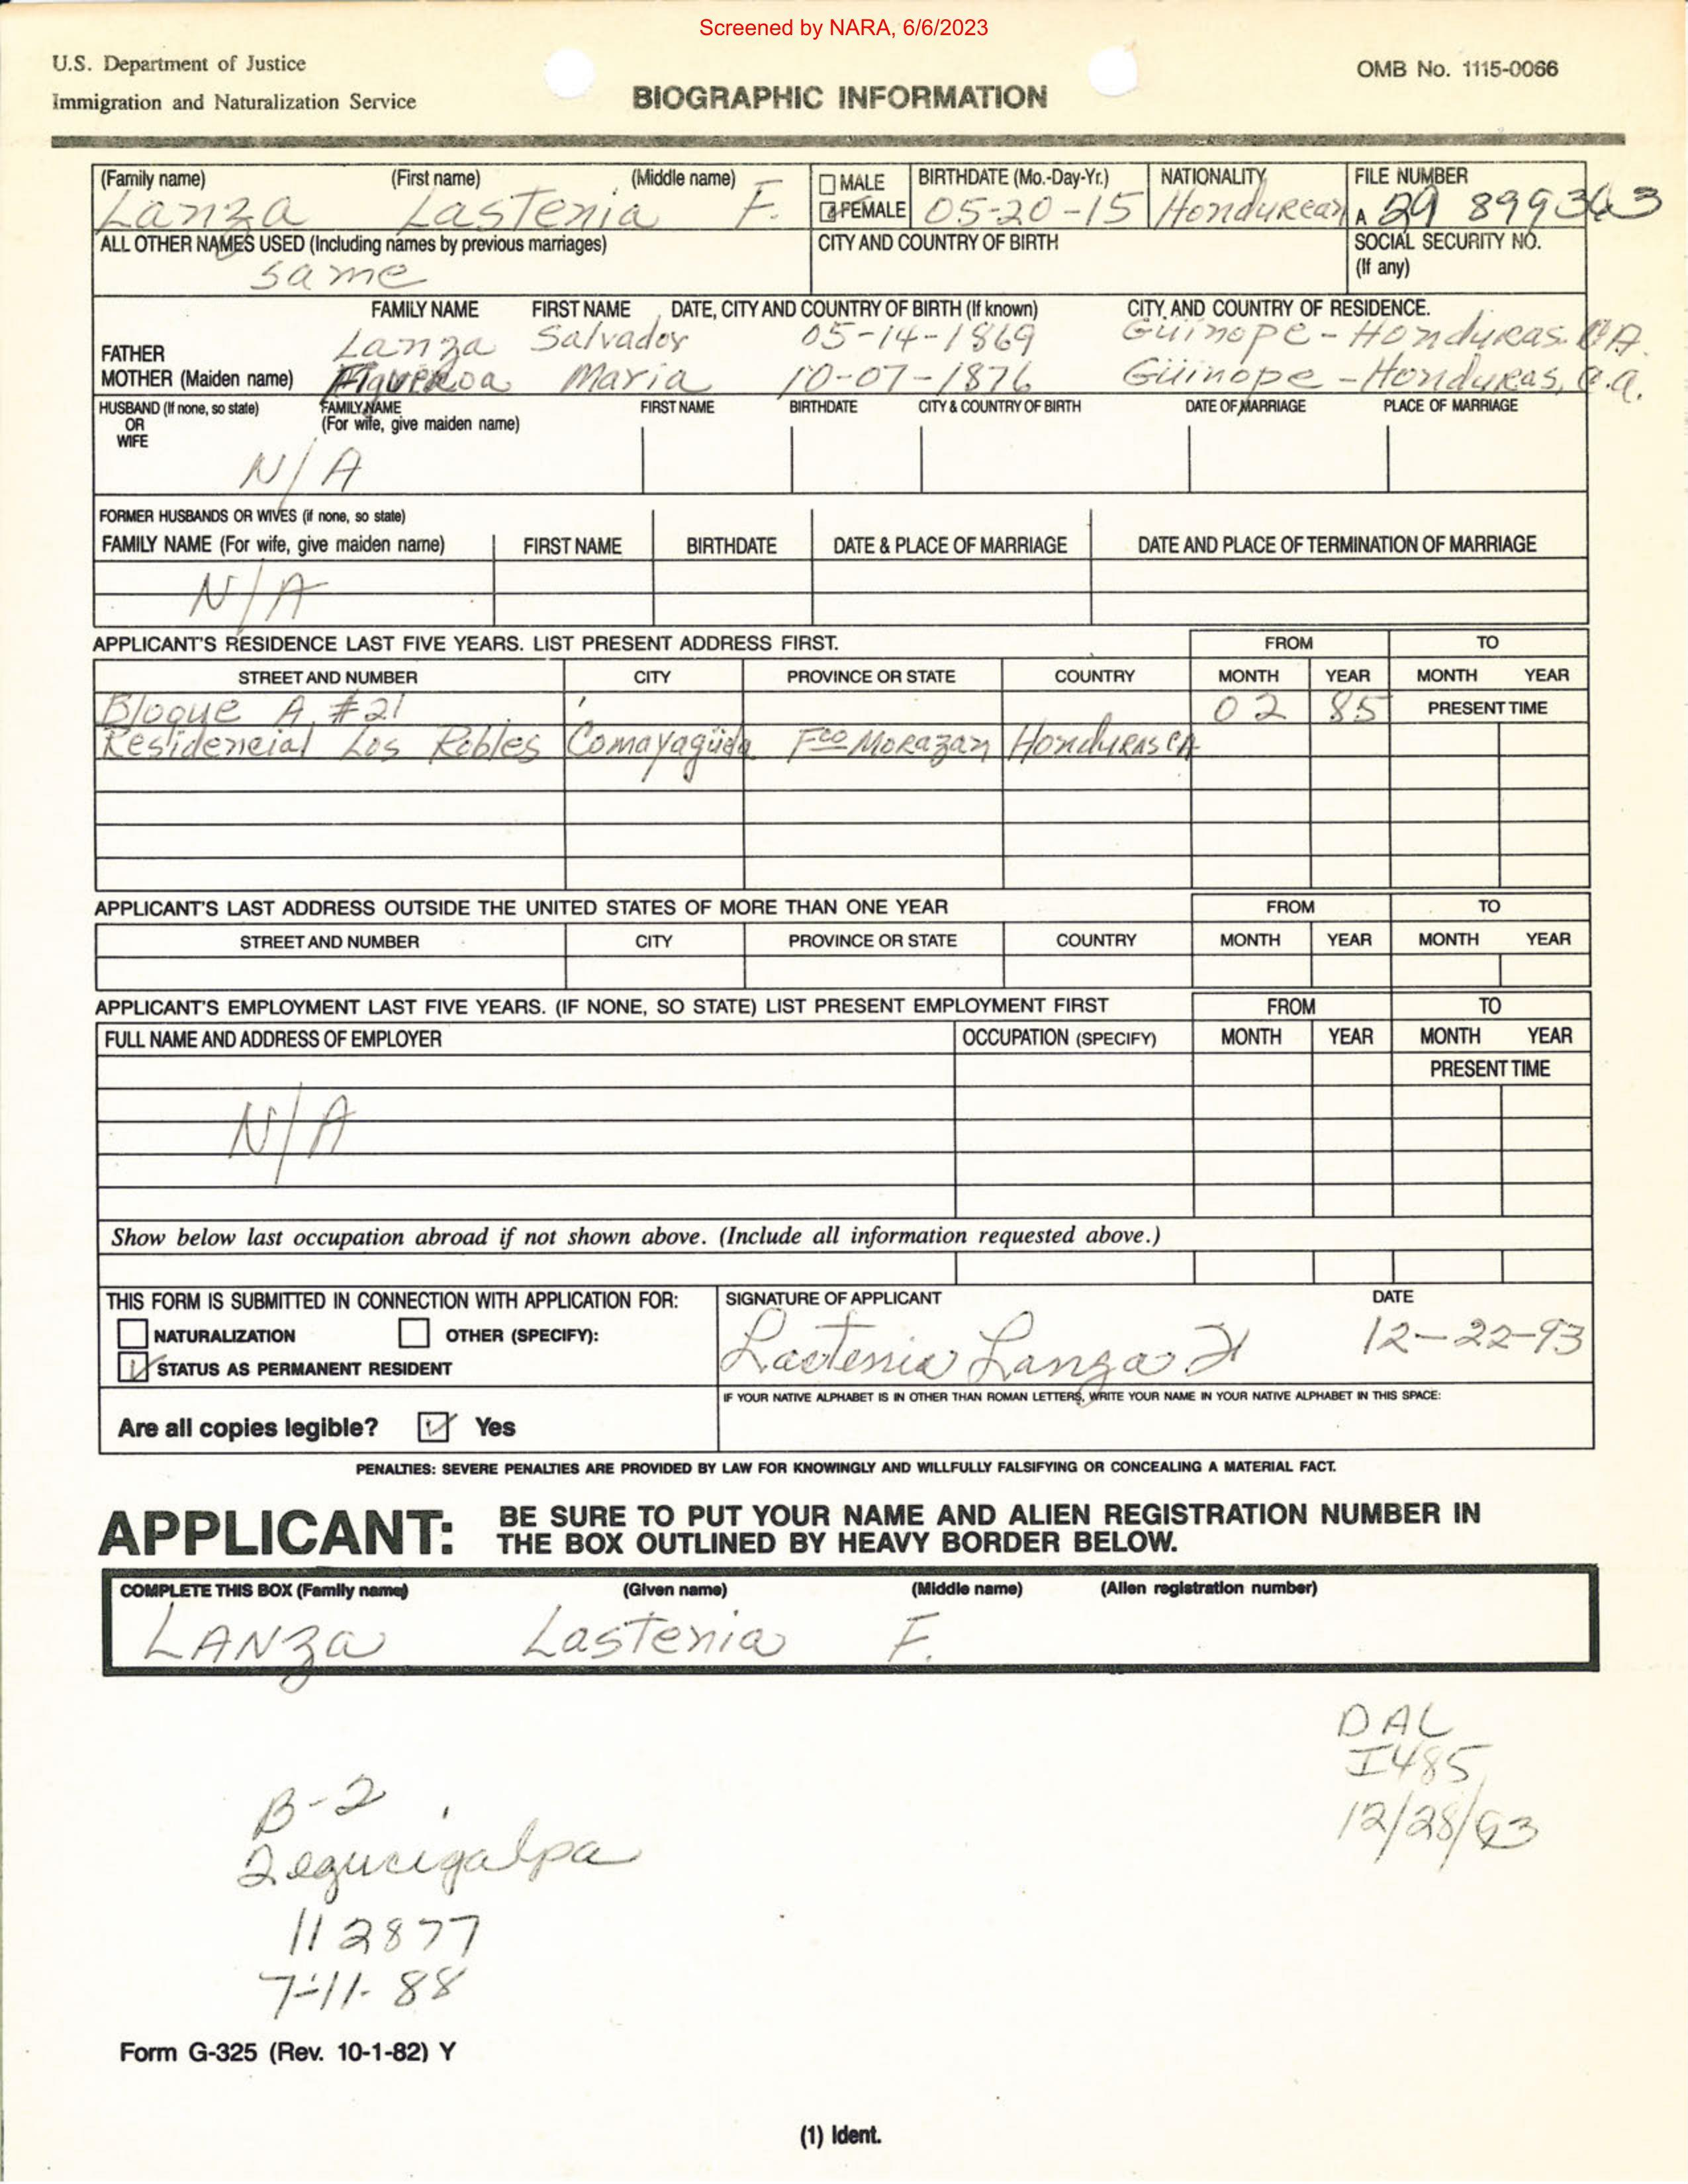 Screened by NARA, 6/6/2023
U.S. Department of Justice
Immigration and Naturalization Service
BIOGRAPHIC INFORMATION
OMB No. 1115-0066
(Family name) (First name) (Middle name) □ MALE BIRTHDATE (Mo.-Day-Yr.) NATIONALITY FILE NUMBER
Lanza Lastenia F. ☑ FEMALE 05-20-15 Hondurean A 29 899363
ALL OTHER NAMES USED (Including names by previous marriages) CITY AND COUNTRY OF BIRTH SOCIAL SECURITY NO.
same (If any)
FAMILY NAME FIRST NAME DATE, CITY AND COUNTRY OF BIRTH (If known) CITY AND COUNTRY OF RESIDENCE.
FATHER Lanza Salvador 05-14-1869 Güinope-Honduras. CA.
MOTHER (Maiden name) Figueroa Maria 10-07-1876 Güinope-Honduras, C.A.
HUSBAND (If none, so state) FAMILY NAME FIRST NAME BIRTHDATE CITY & COUNTRY OF BIRTH DATE OF MARRIAGE PLACE OF MARRIAGE
OR (For wife, give maiden name)
WIFE
N/A
FORMER HUSBANDS OR WIVES (if none, so state)
FAMILY NAME (For wife, give maiden name) FIRST NAME BIRTHDATE DATE & PLACE OF MARRIAGE DATE AND PLACE OF TERMINATION OF MARRIAGE
N/A
APPLICANT'S RESIDENCE LAST FIVE YEARS. LIST PRESENT ADDRESS FIRST. FROM TO
STREET AND NUMBER CITY PROVINCE OR STATE COUNTRY MONTH YEAR MONTH YEAR
Bloque A #21 02 85 PRESENT TIME
Residencial Los Robles Comayagüela Fco Morazan Honduras CA
APPLICANT'S LAST ADDRESS OUTSIDE THE UNITED STATES OF MORE THAN ONE YEAR FROM TO
STREET AND NUMBER CITY PROVINCE OR STATE COUNTRY MONTH YEAR MONTH YEAR
APPLICANT'S EMPLOYMENT LAST FIVE YEARS. (IF NONE, SO STATE) LIST PRESENT EMPLOYMENT FIRST FROM TO
FULL NAME AND ADDRESS OF EMPLOYER OCCUPATION (SPECIFY) MONTH YEAR MONTH YEAR
PRESENT TIME
N/A
Show below last occupation abroad if not shown above. (Include all information requested above.)
THIS FORM IS SUBMITTED IN CONNECTION WITH APPLICATION FOR: SIGNATURE OF APPLICANT DATE
□ NATURALIZATION □ OTHER (SPECIFY): Lastenia Lanza F 12-22-93
☑ STATUS AS PERMANENT RESIDENT
IF YOUR NATIVE ALPHABET IS IN OTHER THAN ROMAN LETTERS, WRITE YOUR NAME IN YOUR NATIVE ALPHABET IN THIS SPACE:
Are all copies legible? ☑ Yes
PENALTIES: SEVERE PENALTIES ARE PROVIDED BY LAW FOR KNOWINGLY AND WILLFULLY FALSIFYING OR CONCEALING A MATERIAL FACT.
APPLICANT: BE SURE TO PUT YOUR NAME AND ALIEN REGISTRATION NUMBER IN
THE BOX OUTLINED BY HEAVY BORDER BELOW.
COMPLETE THIS BOX (Family name) (Given name) (Middle name) (Alien registration number)
LANZa Lastenia F.
DAL
I485
12/28/93
B-2
Tegucigalpa
112877
7-11-88
Form G-325 (Rev. 10-1-82) Y
(1) Ident.